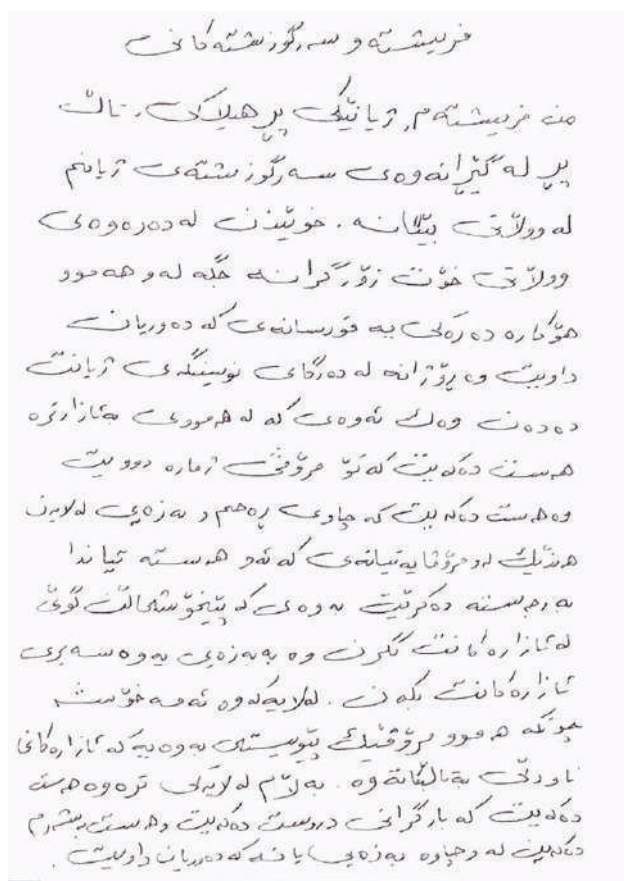 فریشته و سەرگوزشتەکانی
من فریشتەم، ژیانێکی پڕ هیلاکی، تاڵ
پڕ لە گێڕانەوەی سەرگوزشتەی ژیانم
لە وولاتی بێگانە. خوێندن لە دەرەوەی
وولاتی خۆت زۆر گرانە جگە لەو هەموو
هۆکارە دەرەکی یە قورسانەی کە دەوریان
داویت وە ڕۆژانە لە دەرگای نوسینگەی ژیانت
دەدەن وەک ئەوەی کە لە هەمووی بەئازارترە
هەست دەکەیت کە تۆ مرۆڤی ژمارە دوویت
وە هەست دەکەیت کە چاوی ڕەحم و بەزەیی لەلایەن
هەندێک لەو مرۆڤایەتیانەی کە ئەو هەستە تیاندا
بەرجەستە دەکرێت بەوەی کە پێخۆشحاڵن گوێ
لە ئازارەکانت بگرن وە بە بەزەیی یەوە سەیری
ئازارەکانت بکەن. لەلایەکەوە ئەمە خۆشە
چونکە هەموو مرۆڤێک پێویستی بەوەیە کە ئازارەکانی
ناودڵی بەتاڵکاتەوە. بەڵام لەلایەکی ترەوە هەست
دەکەیت کە بارگرانی دروست دەکەیت وهەست بەشەرم
دەکەیت لەو چاوە بەزەیی یانە کە دەوریان داویت.